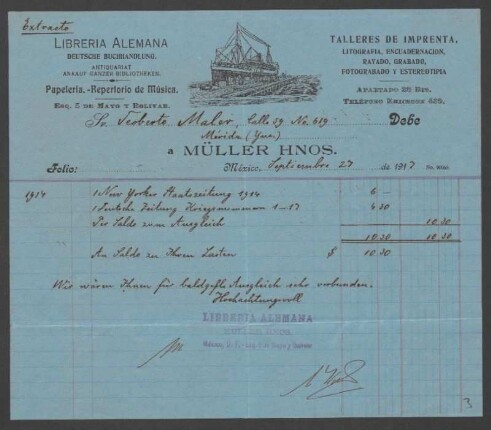 Extracto
LIBRERIA ALEMANA
DEUTSCHE BUCHHANDLUNG.
ANTIQUARIAT
ANKAUF GANZER BIBLIOTHEKEN.
Papelería.-Repertorio de Música.
ESQ. 5 DE MAYO Y BOLIVAR.
TALLERES DE IMPRENTA,
LITOGRAFIA, ENCUADERNACION,
RAYADO, GRABADO,
FOTOGRABADO Y ESTEREOTIPIA
APARTADO 25 BIS.
TELÉFONO ERICSSON
Sr. Teoberto Maler, Calle 59 No. 619 Debe
Mérida (Yuc.)
a MÜLLER HNOS.
Folio: México, Septiembre 27 de 1917
1914 1 New Yorker Staatszeitung 1914 6 -
1 Deutsche Zeitung Kriegsnummern 1-17 4 30
Per Saldo zum Ausgleich 10 30
10 30 10 30
An Saldo zu Ihren Lasten $ 10 30
Wir wären Ihnen für baldgefl. Ausgleich sehr verbunden.
Hochachtungsvoll
LIBRERIA ALEMANA
MÜLLER HNOS.
3